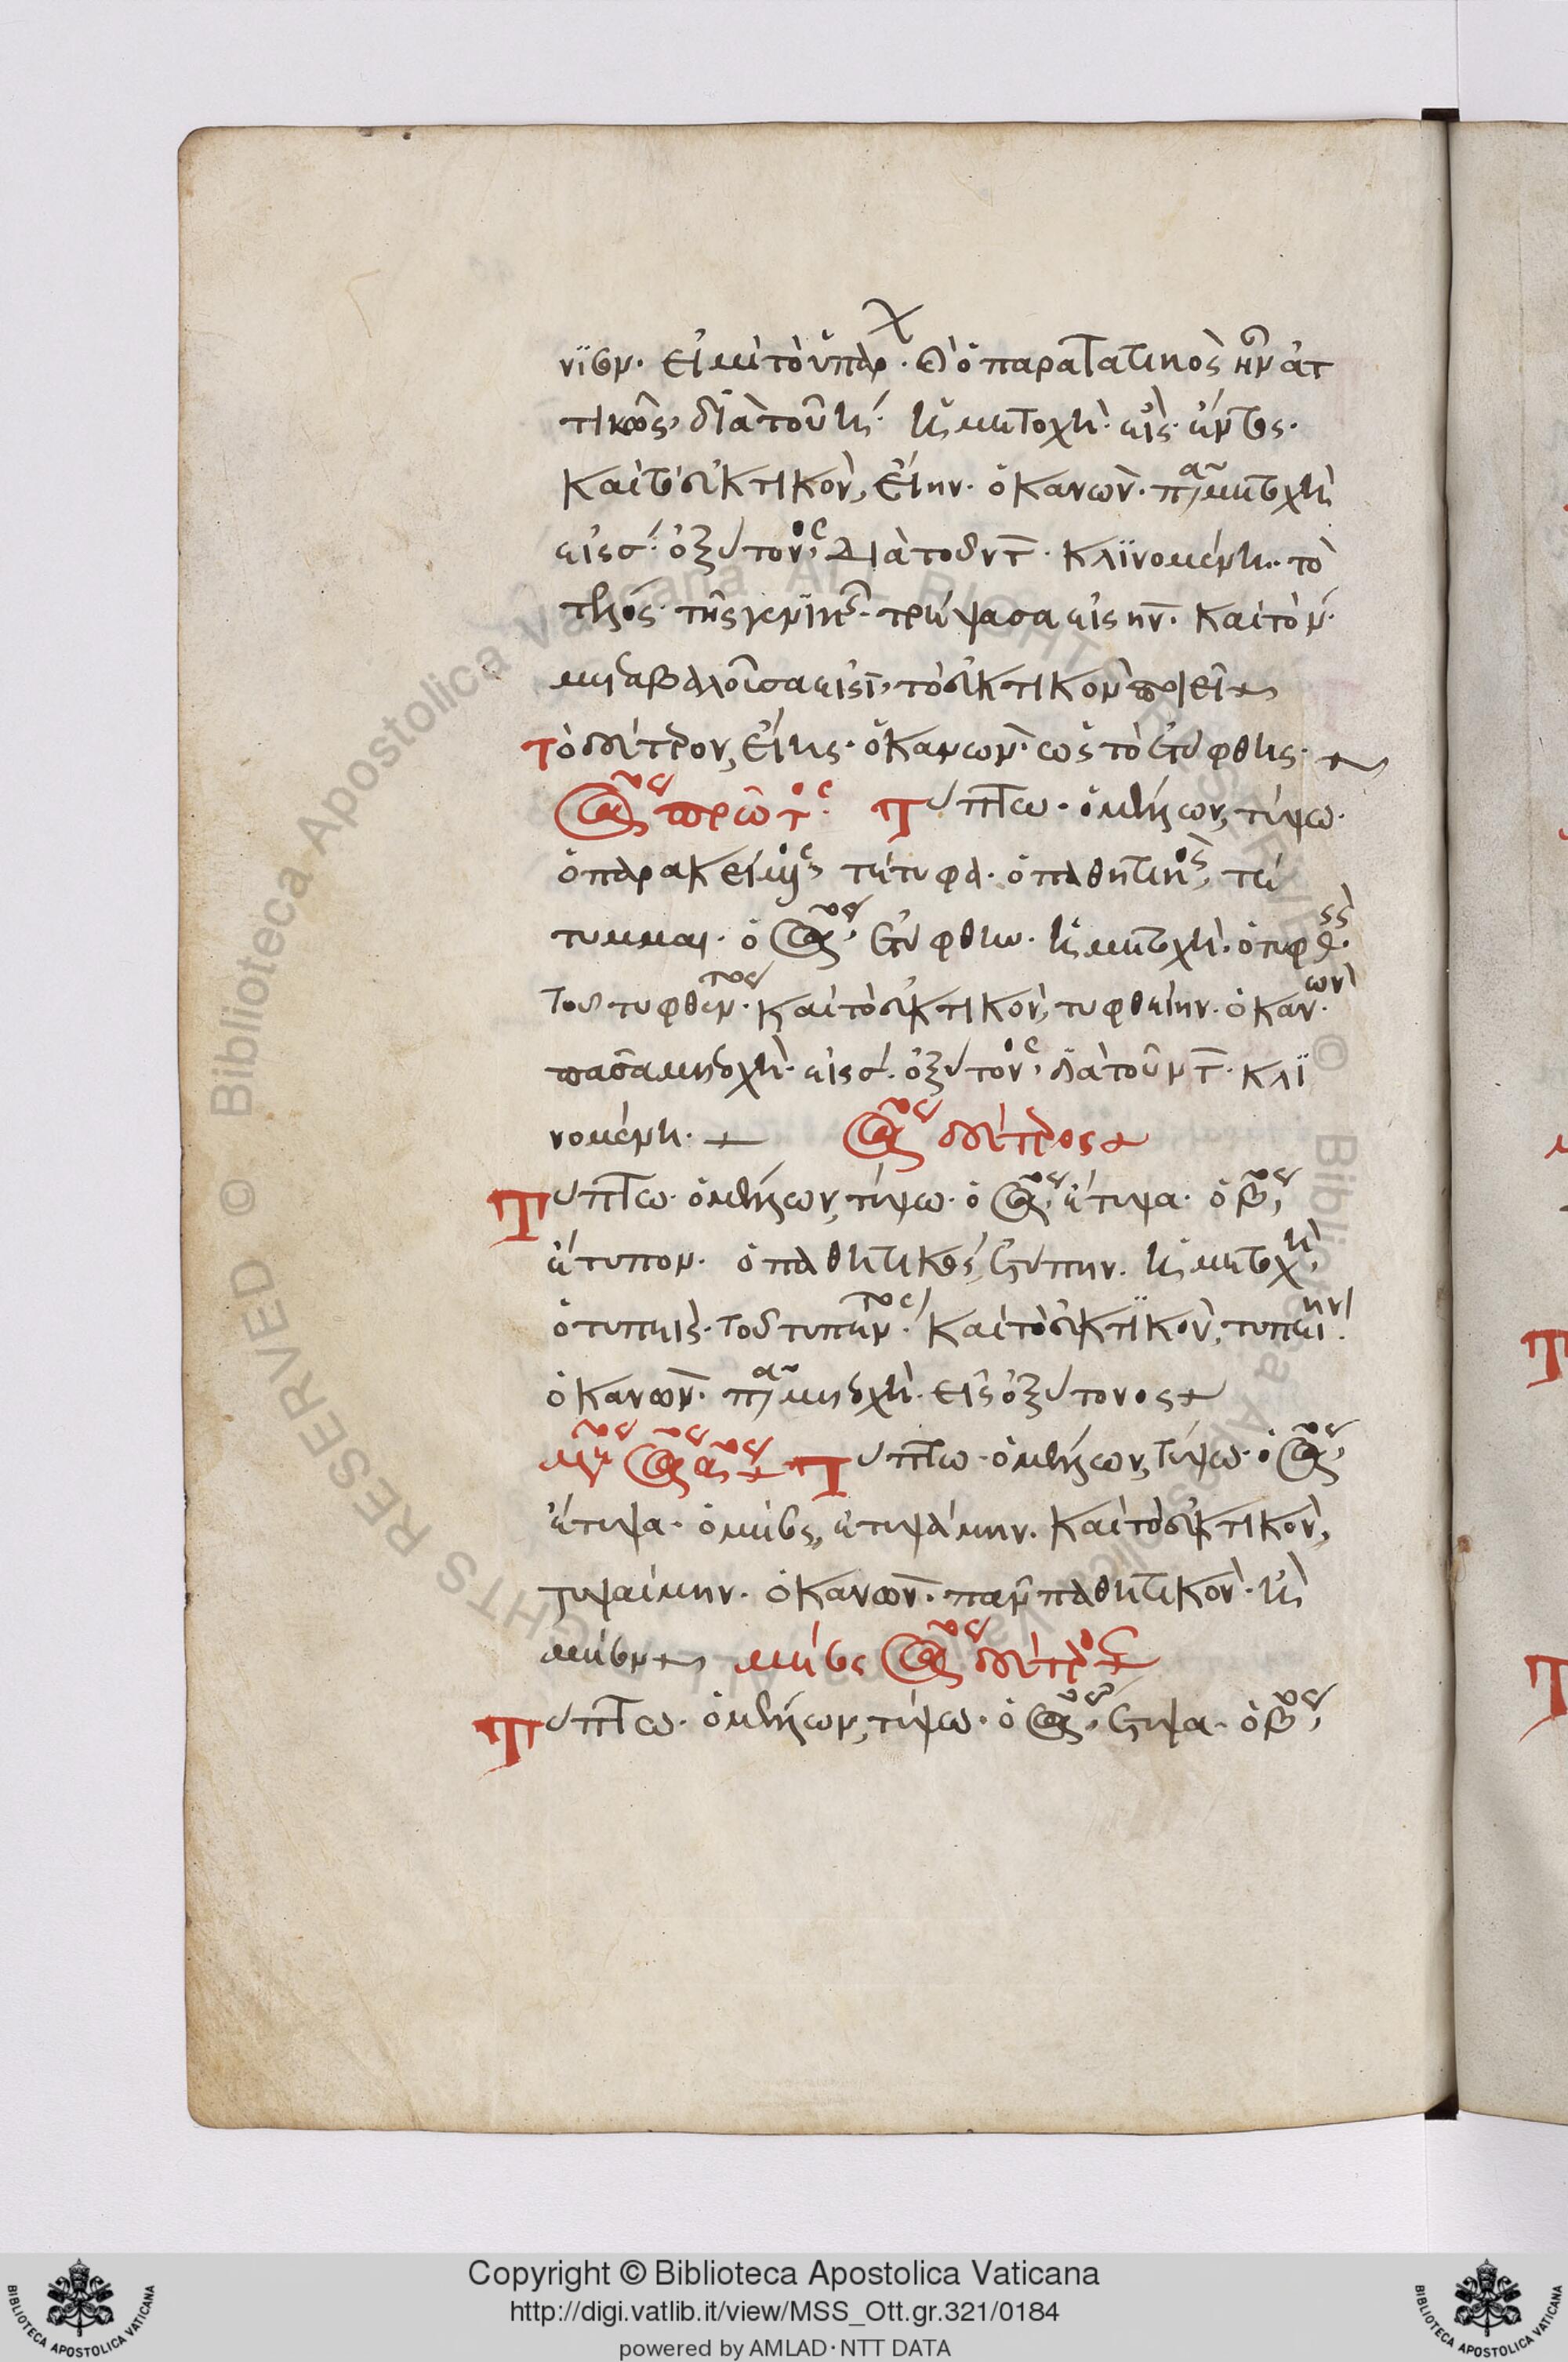 νϊεν. εἰμὶ τὸ ὑπάρχ. οὗ ὁ παρατατικὸς ἦν ἀτ
τικῶς, διὰ τοῦ η. ἡ μετοχὴ. εἰς. ἔντος.
καὶ τὸ εὐκτικὸν, εἴην. ὁ κανὼν. πᾶσα μετοχὴ
εἰς ς. ὀξύτονος, διὰ τοῦ ντ. κλϊνομένη. τὸ
τέλος τῆς γενϊκῆς. τρέψασα εἰς ην. καὶ τὸ ν.
μεταβαλοῦσα εἰς ϊ, τὸ εὐκτικὸν ποιεῖ
τὸ δεύτερον, εἴης. ὁ κανὼν. ὡς τὸ ἐτύφθης.
ἀόριστος πρῶτος. τύπτω. ὁ μέλλων, τύψω.
ὁ παρακείμενος, τέτυφα. ὁ παθητικὸς, τέ
τυμμαι. ὁ ἀόριστος, ἐτύφθην. ἡ μετοχὴ. ὁ τυφθεὶς.
τοῦ τυφθέντος. καὶ τὸ εὐκτικὸν, τυφθείην. ὁ κανὼν.
πᾶσα μετοχὴ. εἰς ς. ὀξύτονος, διὰ τοῦ ντ. κλϊ
νομένη. ἀόριστος δεύτερος
τύπτω. ὁ μέλλων, τύψω. ὁ ἀόριστος, ἔτυψα. ὁ βος,
ἔτυπον. ὁ παθητικὸς, ἐτύπην. ἡ μετοχὴ,
ὁ τυπεὶς. τοῦ τυπέντος. καὶ τὸ εὐκτϊκὸν, τυπείην.
ὁ κανὼν. πᾶσα μετοχὴ. εἰς ὀξύτονος
μέσος ἀόριστος αος τύπτω. ὁ μέλλων, τύψω. ὁ ἀόριστος,
ἔτυψα. ὁ μέσος, ἐτυψάμην. καὶ τὸ εὐκτικὸν,
τυψαίμην. ὁ κανὼν. πᾶν παθητικὸν. ἢ
μέσον μέσος ἀόριστος δεύτερος
τύπτω. ὁ μέλλων, τύψω. ὁ ἀόριστος, ἔτυψα. ὁ βος,
© Biblioteca Apostolica Vaticana ALL RIGHTS RESERVED
Copyright © Biblioteca Apostolica Vaticana
http://digi.vatlib.it/view/MSS_Ott.gr.321/0184
powered by AMLAD·NTT DATA
BIBLIOTECA APOSTOLICA VATICANA
BIBLIOTECA APOSTOLICA VATICANA